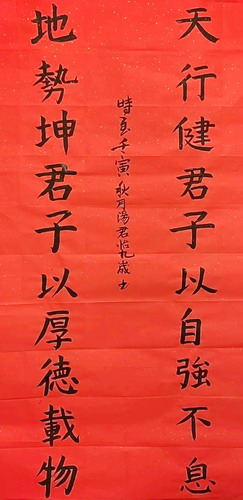 天行健君子以自強不息
地勢坤君子以厚德載物
時至壬寅秋月湯君怡九歲書